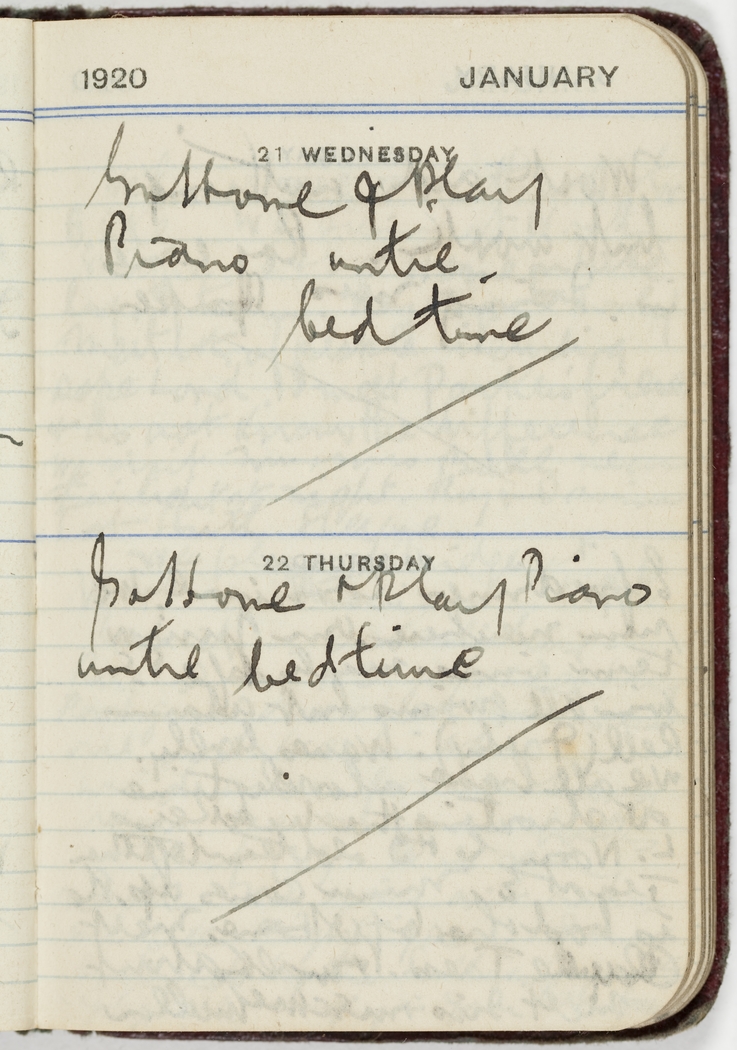 1920 JANUARY
21 WEDNESDAY
Got Home & Play
Piano until
bedtime
22 THURSDAY
Got Home & Play Piano
until bedtime